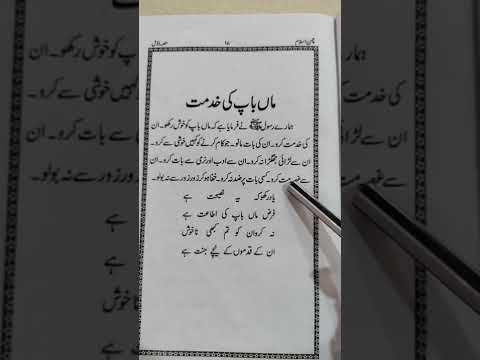 چمن اسلام ۱۸ حصہ اول
ماں باپ کی خدمت
ہمارے رسول ﷺ نے فرمایا ہے کہ ماں باپ کو خوش رکھو۔ ان
کی خدمت کرو۔ ان کی بات مانو۔ جو کام کرنے کو کہیں خوشی سے کرو۔
ان سے لڑائی جھگڑا نہ کرو۔ ان سے ادب اور نرمی سے بات کرو۔ ان
سے غصہ مت کرو۔ کسی بات پر ضد نہ کرو۔ خفا ہو کر زور زور سے نہ بولو۔
یاد رکھو کہ یہ نصیحت ہے
فرض ماں باپ کی اطاعت ہے
نہ کرو ان کو تم کبھی ناخوش
ان کے قدموں کے نیچے جنت ہے